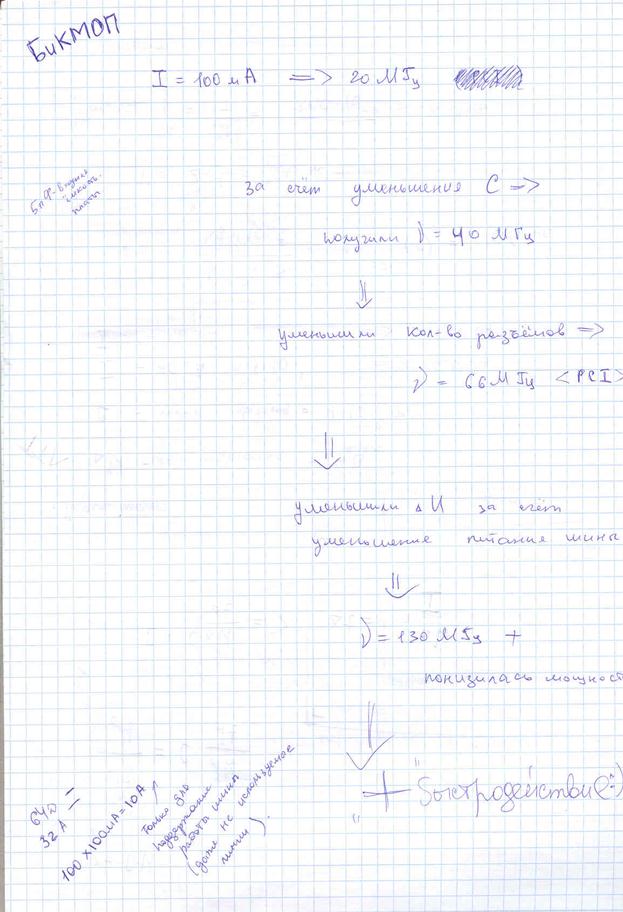 БиКМОП
I = 100 мА => 20 МГц
5пФ - входная
ёмкость
платы
За счёт уменьшения C =>
получили ν = 40 МГц
уменьшили кол-во разъёмов =>
ν = 66 МГц <PCI>
уменьшили ΔU за счёт
уменьшение питание шины
ν = 130 МГц +
понизилась мощност
"+" Быстродействие :)
64 D
32 A
100 x 100мА = 10А
только для
поддержание
работы шины
(даже не используемые
линии).